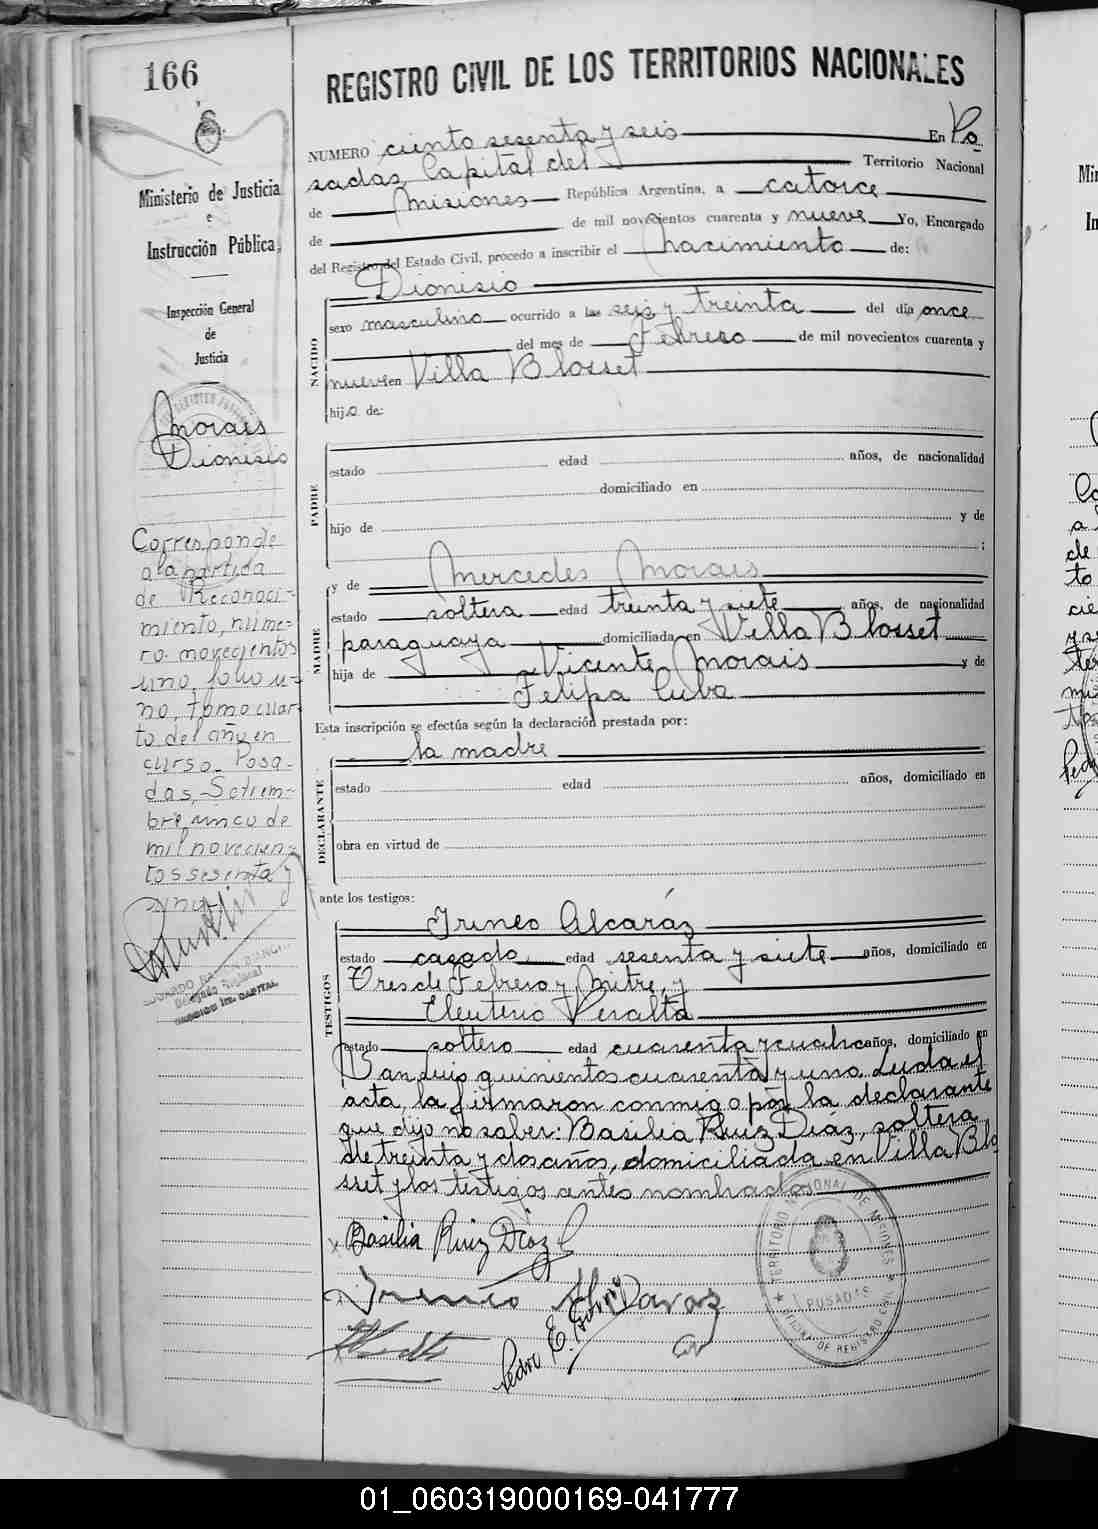 166
Ministerio de Justicia
e
Instrucción Pública
Inspección General
de
Justicia
Morais
Dionisio
Corresponde
a la partida
de Reconoci-
miento, núme-
ro novecientos
uno, folio u-
no, tomo cuar-
to del año en
curso. Posa-
das, Setiem-
bre cinco de
mil novecien-
tos sesenta y
cinco
REGISTRO CIVIL DE LOS TERRITORIOS NACIONALES
NUMERO ciento sesenta y seis En Po
sadas, Capital del Territorio Nacional
de Misiones República Argentina, a catorce
de de mil novecientos cuarenta y nueve Yo, Encargado
del Registro del Estado Civil, procedo a inscribir el nacimiento de:
NACIDO
Dionisio
sexo masculino ocurrido a las seis y treinta del día once
del mes de Febrero de mil novecientos cuarenta y
nueve en Villa Blosset
hijo de:
PADRE
estado edad años, de nacionalidad
domiciliado en
hijo de y de
;
MADRE
y de Mercedes Morais
estado soltera edad treinta y siete años, de nacionalidad
paraguaya domiciliada en Villa Blosset
hija de Vicente Morais y de
Felipa Cuba
Esta inscripción se efectúa según la declaración prestada por:
DECLARANTE
la madre
estado edad años, domiciliado en
obra en virtud de
ante los testigos:
TESTIGOS
Irineo Alcaráz
estado casado edad sesenta y siete años, domiciliado en
Tres de Febrero y Mitre, y
Eleuterio Peralta
estado soltero edad cuarenta y cuatro años, domiciliado en
San Luis quinientos cuarenta y uno. Leída el
acta, la firmaron conmigo por la declarante
que dijo no saber: Basilia Ruiz Díaz, soltera
de treinta y dos años, domiciliada en Villa Blo
sset y los testigos antes nombrados
Basilia Ruiz Diaz
Irineo Alcaraz
Pedro E.
TERRITORIO NACIONAL DE MISIONES
POSADAS
OFICINA DE REGISTRO CIVIL
01_060319000169-041777